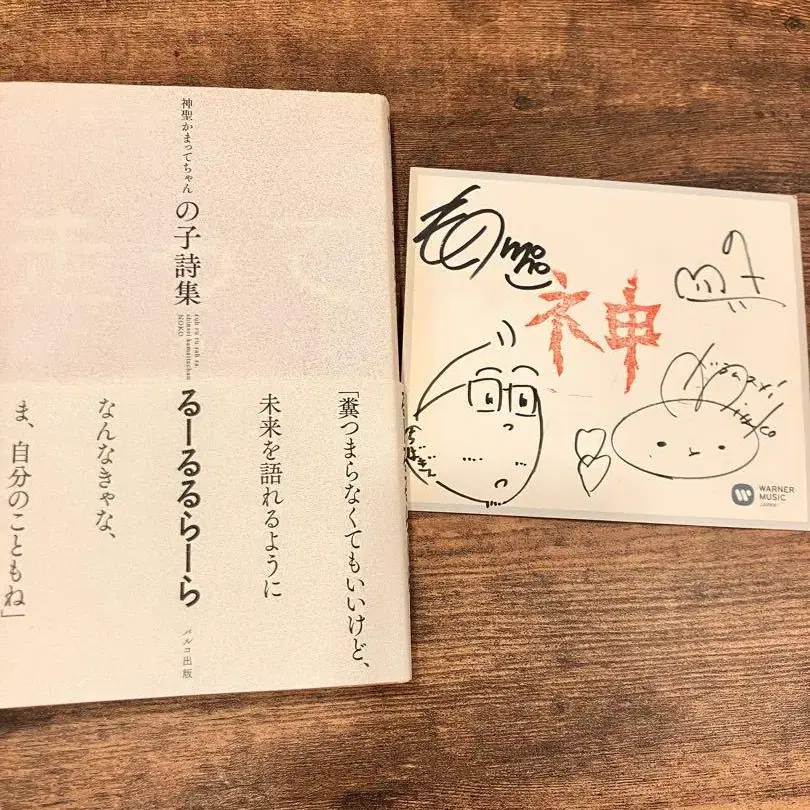 神聖かまってちゃん
の子詩集
ruh ru ru rah ra
shinsei kamattechan
NOKO
るーるるらーら
パルコ出版
「糞つまらなくてもいいけど、
未来を語れるように
なんなきゃな、
ま、自分のこともね」
mono
の子
神
ちばぎん
みさこ
WARNER
MUSIC
JAPAN